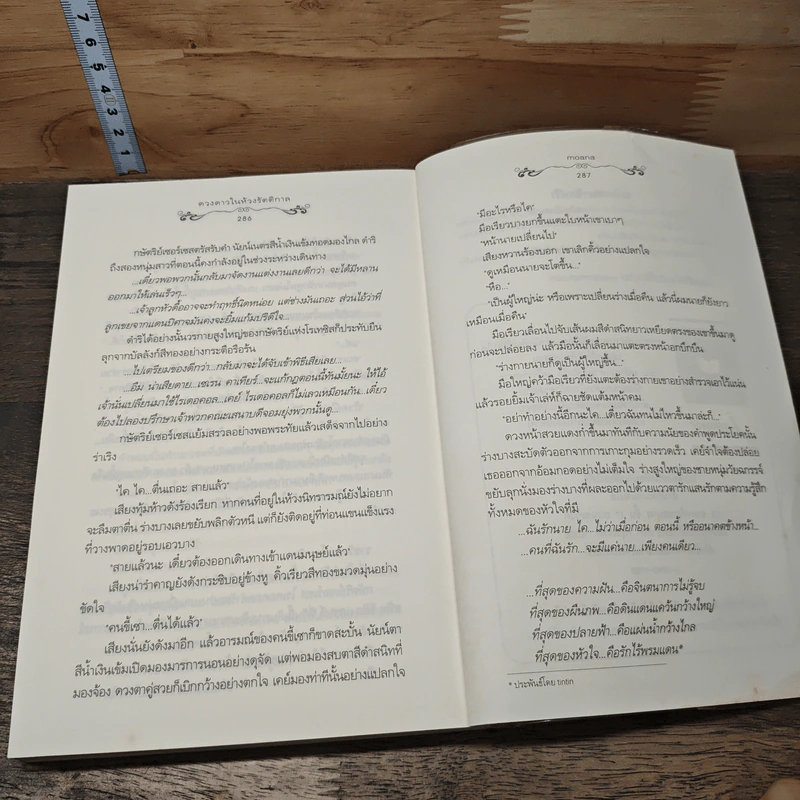 7
6
5
4
3
2
1
ดวงดาวในห้วงรัตติกาล
286
กษัตริย์เซอร์เซสตรัสรับคำ นัยน์เนตรสีน้ำเงินเข้มทอดมองไกล ดำริ
ถึงสองหนุ่มสาวที่ตอนนี้คงกำลังอยู่ในช่วงระหว่างเดินทาง
...เดี๋ยวพอพวกนั้นกลับมาจัดงานแต่งงานเลยดีกว่า จะได้มีหลาน
ออกมาให้เล่นเร็วๆ...
...เจ้าลูกหัวดื้ออาจจะทำฤทธิ์นิดหน่อย แต่ช่างมันเถอะ ส่วนไอ้ว่าที่
ลูกเขยจากแดนปีศาจมันคงจะยิ้มแก้มปริดีใจ...
ดำริได้อย่างนั้นวรกายสูงใหญ่ของกษัตริย์แห่งโรเทซิสก็ประทับยืน
ลุกจากบัลลังก์สีทองอย่างกระตือรือร้น
...ไปเตรียมของดีกว่า...กลับมาจะได้จับเข้าพิธีเสียเลย...
...อืม น่าเสียดาย...เซเรน คาเทียร์...จะแก้กฎตอนนี้ทันมั้ยนะ ให้ไอ้
เจ้านั่นเปลี่ยนมาใช้ไรเดอคอล...เคย์ ไรเดอคอลก็ไม่เลวเหมือนกัน...เดี๋ยว
ต้องไปลองปรึกษาเจ้าพวกคณะเสนาบดีจอมยุ่งพวกนั้นดู...
กษัตริย์เซอร์เซสแย้มสรวลอย่างพอพระทัยแล้วเสด็จจากไปอย่าง
ร่าเริง
"ไค ไค...ตื่นเถอะ สายแล้ว"
เสียงทุ้มห้าวดังร้องเรียก หากคนที่อยู่ในห้วงนิทรารมณ์ยังไม่อยาก
จะลืมตาตื่น ร่างบางเลยขยับพลิกตัวหนี แต่ก็ยังติดอยู่ที่ท่อนแขนแข็งแรง
ที่วางพาดอยู่รอบเอวบาง
"สายแล้วนะ เดี๋ยวต้องออกเดินทางเข้าแดนมนุษย์แล้ว"
เสียงน่ารำคาญยังดังกระซิบอยู่ข้างหู คิ้วเรียวสีทองขมวดมุ่นอยาง
ขัดใจ
"คนขี้เซา...ตื่นได้แล้ว"
เสียงนั่นยังดังมาอีก แล้วอารมณ์ของคนขี้เซาก็ขาดสะบั้น นัยน์ตา
สีน้ำเงินเข้มเปิดมองมารการนอนอย่างดุจัด แต่พอมองสบตาสีดำสนิทที่
มองจ้อง ดวงตาคู่สวยก็เบิกกว้างอย่างตกใจ เคย์มองท่าทีนั้นอย่างแปลกใจ
moana
287
"มีอะไรหรือไค"
มือเรียวบางยกขึ้นแตะใบหน้าเขาเบาๆ
"หน้านายเปลี่ยนไป"
เสียงหวานร้องบอก เขาเลิกคิ้วอย่างแปลกใจ
"ดูเหมือนนายจะโตขึ้น..."
"หือ..."
"เป็นผู้ใหญ่น่ะ หรือเพราะเปลี่ยนร่างเมื่อคืน แล้วนี่ผมนายก็ยังยาว
เหมือนเมื่อคืน"
มือเรียวเลื่อนไปจับเส้นผมสีดำสนิทยาวเหยียดตรงของเขาขึ้นมาดู
ก่อนจะปล่อยลง แล้วมือนั้นก็เลื่อนมาแตะตรงหน้าอกบึกบึน
"ร่างกายนายก็ดูเป็นผู้ใหญ่ขึ้น..."
มือใหญ่คว้ามือเรียวที่ยังแตะต้องร่างกายเขาอย่างสำรวจเอาไว้แน่น
แล้วรอยยิ้มเจ้าเล่ห์ก็ฉายชัดเต็มหน้าคม
"อย่าทำอย่างนี้อีกนะไค...เดี๋ยวฉันทนไม่ไหวขึ้นมาล่ะก็..."
ดวงหน้าสวยแดงก่ำขึ้นมาทันทีกับความนัยของคำพูดประโยคนั้น
ร่างบางสะบัดตัวออกจากการเกาะกุมอย่างรวดเร็ว เคย์จำใจต้องปล่อย
เธอออกจากอ้อมกอดอย่างไม่เต็มใจ ร่างสูงใหญ่ของชายหนุ่มวัยฉกรรจ์
ขยับลุกนั่งมองร่างบางที่ผละออกไปด้วยแววตารักแสนรักตามความรู้สึก
ทั้งหมดของหัวใจที่มี
...ฉันรักนาย ไค...ไม่ว่าเมื่อก่อน ตอนนี้ หรืออนาคตข้างหน้า...
...คนที่ฉันรัก...จะมีแค่นาย...เพียงคนเดียว...
...ที่สุดของความฝัน...คือจินตนาการไม่รู้จบ
ที่สุดของผืนภพ...คือดินแดนแคว้นกว้างใหญ่
ที่สุดของปลายฟ้า...คือแผ่นน้ำกว้างไกล
ที่สุดของหัวใจ...คือรักไร้พรมแดน*
* ประพันธ์โดย tintin